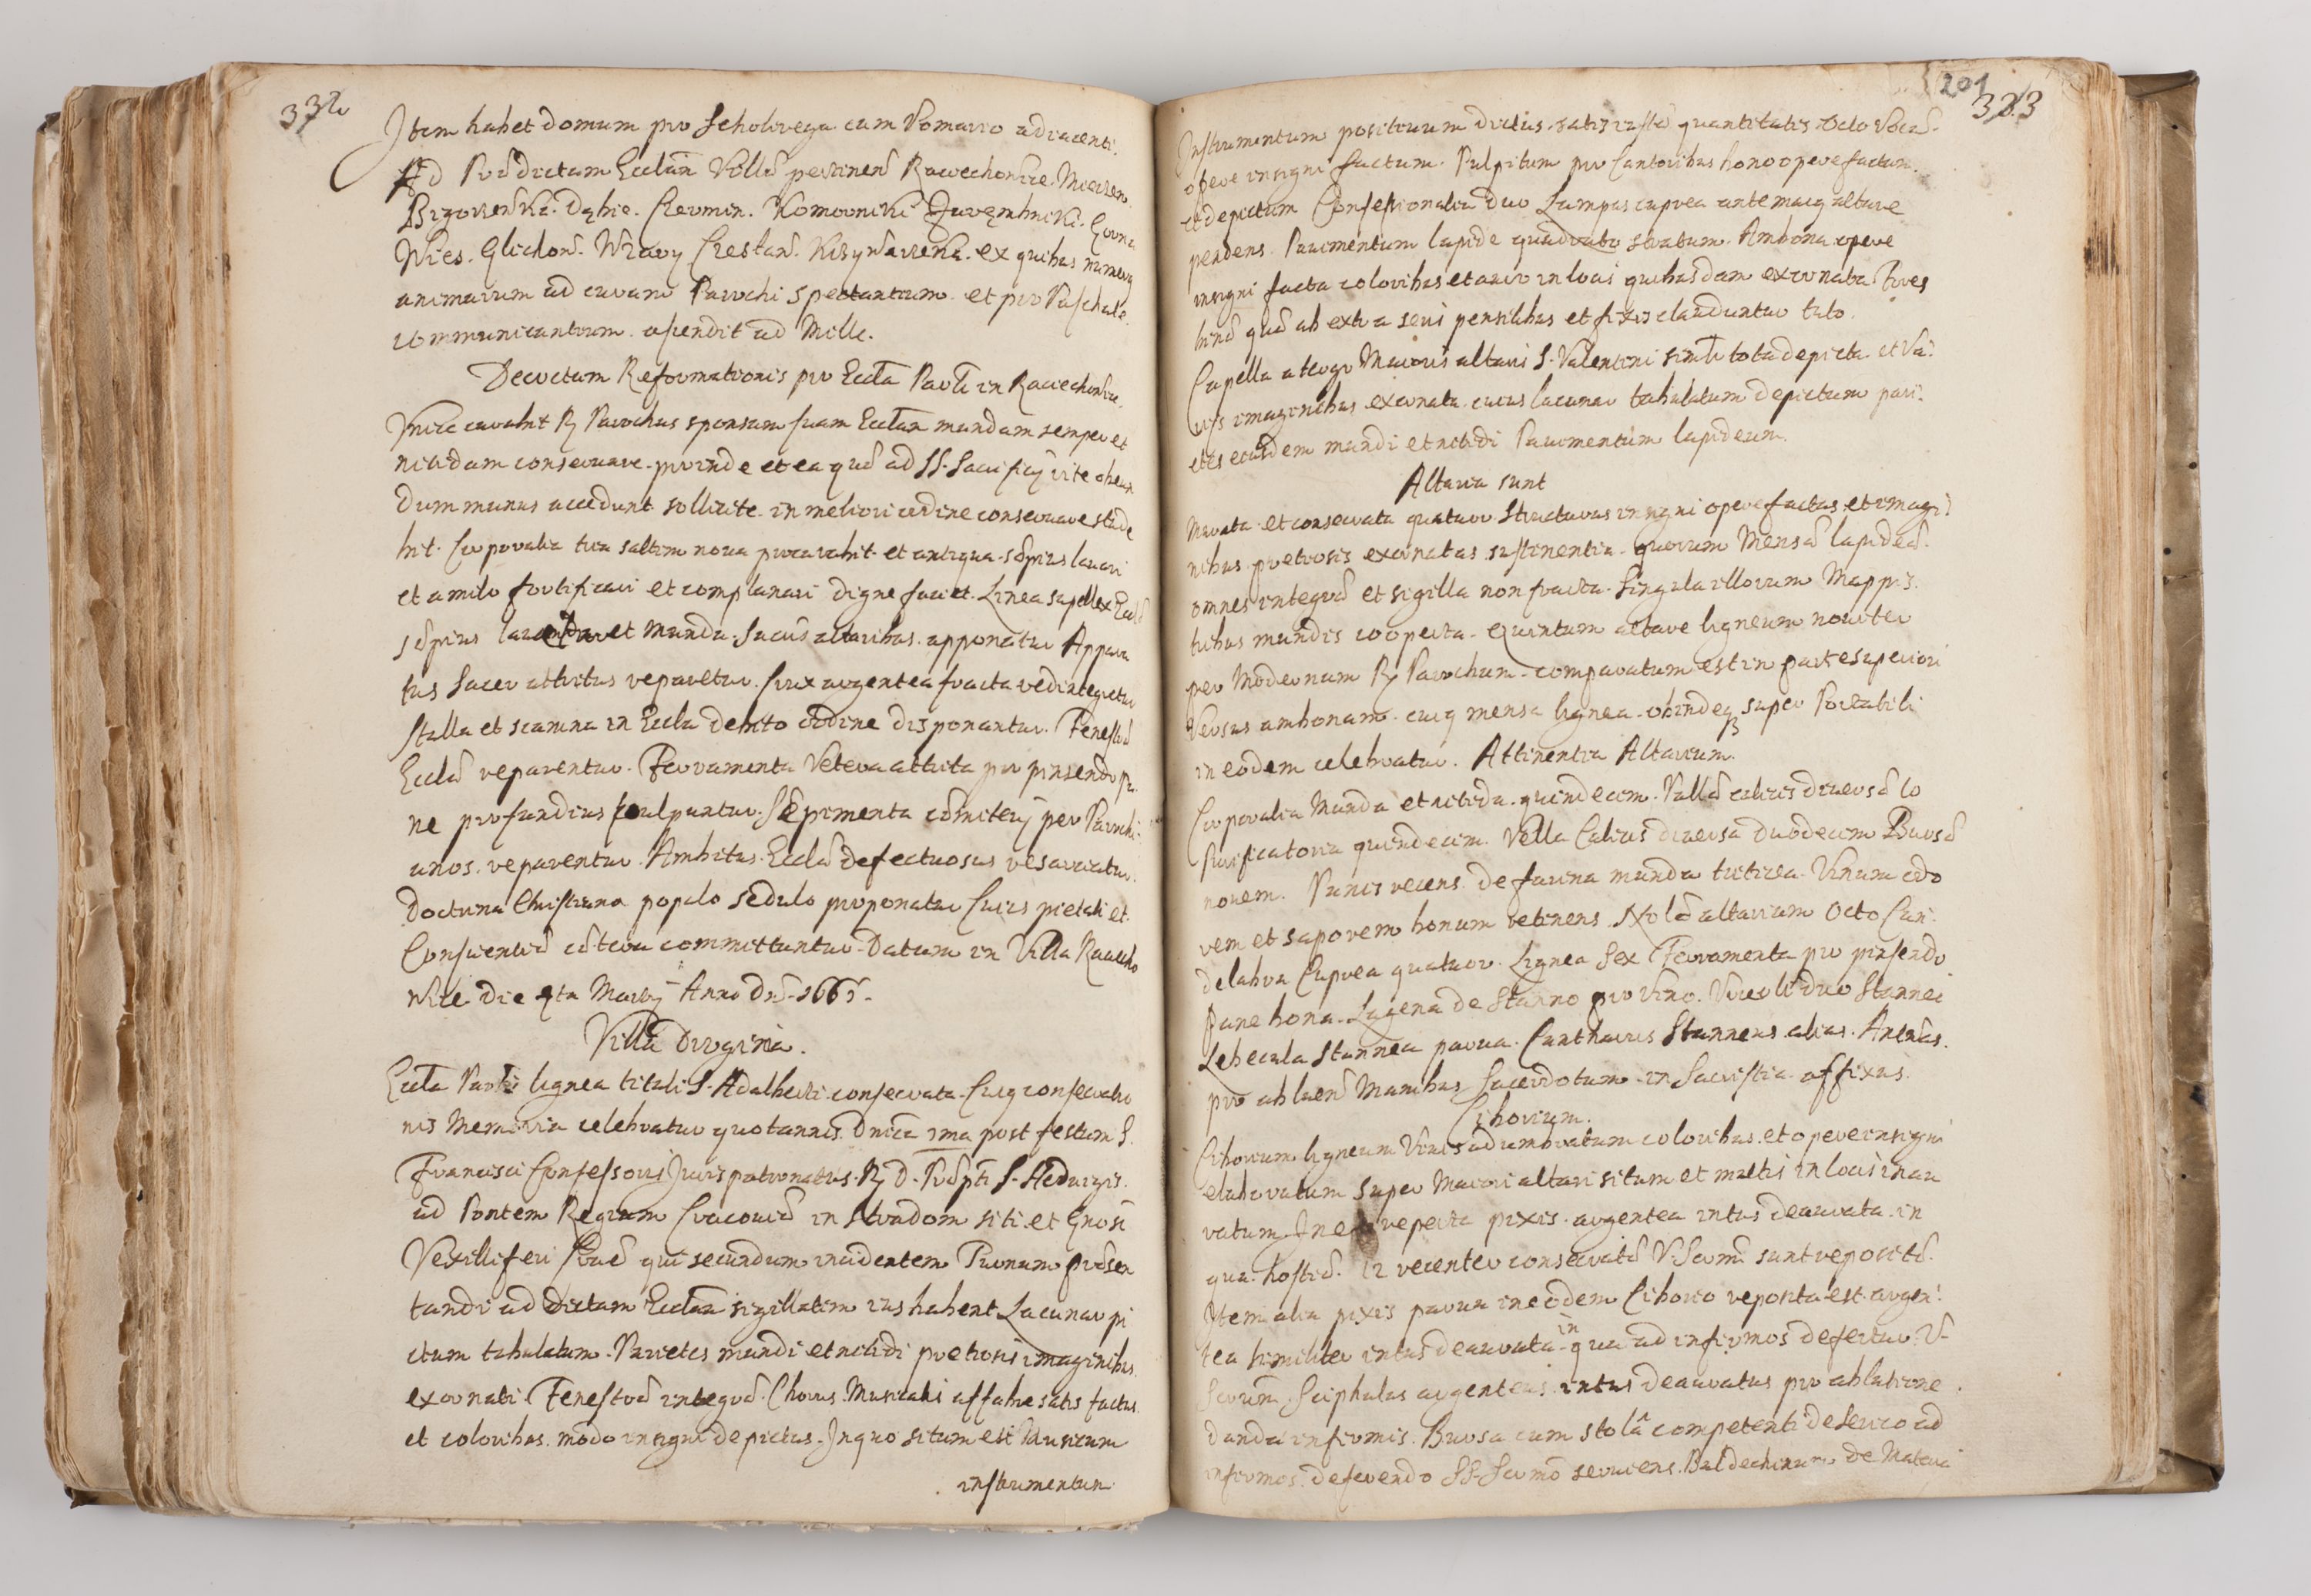 332
Item habet domum pro Scholirega cum Pomario adiacenti.
Ad Prædictam Ecclam Villæ pertinent Raciechonice. Mierzen.
Bigorzouka. Dąbie. Czermin. Komorniki Zaręmbniki. Gorna
Wies. Glichow. Wzary Crestaw. Krzyworzeka. ex quibus numerus
animarum ad curam Parochi spectantium et pro Paschale
communicantium ascendit ad Mille.
Decretum Reformationis pro Eccla Parli in Raciechonice.
Unice curabit R Parochus sponsam suam Ecclam mundam semper et
nitidam conseruare. proinde et ea quæ ad SS. Sacrificij rite obeun
dum munus accedunt sollicite in meliori ordine conseruare stude
bit. Corporalia tria saltim noua procurabit et antiqua sæpius lauari
et amilo fortificari et complanari digne faciet. Linea supellex Eccl
sæpius lauetur et munda sacris altaribus apponatur Appara
tus Sacer attritus reparetur. Crux argentea fracta redintegretur
Stalla et scamna in Eccla debito ordine disponantur. Fenestræ
Ecclæ reparentur. Ferramenta Vetera attrita pro pinsendo pa
ne profundius sculpantur. Sepimenta cæmiterij per Parochi
anos reparentur. Ambitus Ecclæ defectuosus resarciatur.
Doctrina Christiana populo sedulo proponatur Cuius pietati et
Conscientiæ cætera committuntur. Datum in Villa Raciecho
nice die 9ta Martij Anno Dni 1665.
Villa Drogina.
Eccla Parlis lignea tituli S. Adalberti consecrata. Cuiq consecratio
nis Memoria celebratur quotannis Dnica ima post festum S.
Francisci Confessoris Jurispatronatus. R D. Præpti S. Heduigis
ad Pontem Regium Cracouiæ in Stradom siti et Gnosi
Vexilliferi qui secundum incidentem Turnum præsen
tandi ad dictam Ecclam sigillatim ius habent Lacunar pi
ctum tabulatum. Parietes mundi et nitidi pretiosis imaginibus
exornati. Fenestræ integræ. Chorus Musicalis affabre satis factus
et coloribus modo insigni depictus. In quo situm est Musicum
instrumentum
201
323
Instrumentum positiuum dictus satis iustæ quantitatis Octo Vocum
opere insigni factum. Pulpitum pro Cantoribus bono opere factum
et depictum Confessionalia duo Lampas cuprea ante maiq altare
pendens. Pauimentum lapide quadrato stratum. Ambona opere
insigni facta coloribus et auro in locis quibusdam exornata Fores
binæ quæ ab extra seris pensilibus et fixis clauduntur tuto.
Capella a tergo Maioris altaris S. Valentini simili tota depicta et Va
rijs imaginibus exornata. cuius lacunar tabulatum depictum pari
etes eiusdem mundi et nitidi Pauimentum lapideum.
Altaria sunt
Murata et consecrata quatuor Structuras insigni opere factas et imagi
nibus pretiosis exornatas sustinentia. quorum Mensæ lapideæ
omnes integræ et sigilla non fracta. Singula illorum Mappis
tribus mundis cooperta. Quintum altare ligneum nouiter
per Modernum R Parochum comparatum est in parte superiori
Versus ambonam. cuiq mensa lignea. ob indeq super Portabili
in eodem celebratur. Attinentia Altarium.
Corporalia Munda et nitida quindecim. Pallæ calicis diuersæ lo
Purificatoria quindecim. Vella Calicis diuersa duodecim Bursæ
nouem. Panis recens de farina munda triticea. Vinum odo
rem et saporem bonum retinens. Nolæ altarium Octo Can
delabra Cuprea quatuor. Lignea Sex Ferramenta pro pinsendo
pane bona. Lagena de Stanno pro Vino. Vrceoli duo Stannei
Lebecula Stannea parua. Cantharus Stanneus alias. Antwas.
pro abluen Manibus Sacerdotum in Sacristia affixus.
Ciborium.
Ciborium ligneum Varijs adumbratum coloribus et opere insigni
elaboratum super Maiori altari situm et multis in locis inau
ratum. In eo reperta pixis argentea intus deaurata. in
qua hostiæ 12 recenter consecratæ V. Scrmi sunt repositæ.
Item alia pixis parua in eodem Ciborio reposita est argen
tea similiter intus deaurata in qua ad infirmos defertur V.
Scrum. Sciphulus argenteus intus deauratus pro ablutione
danda infirmis. Bursa cum stolâ competenti de serico ad
infirmos deferendo SS. Scrmo seruiens. Baldechinum de Materia